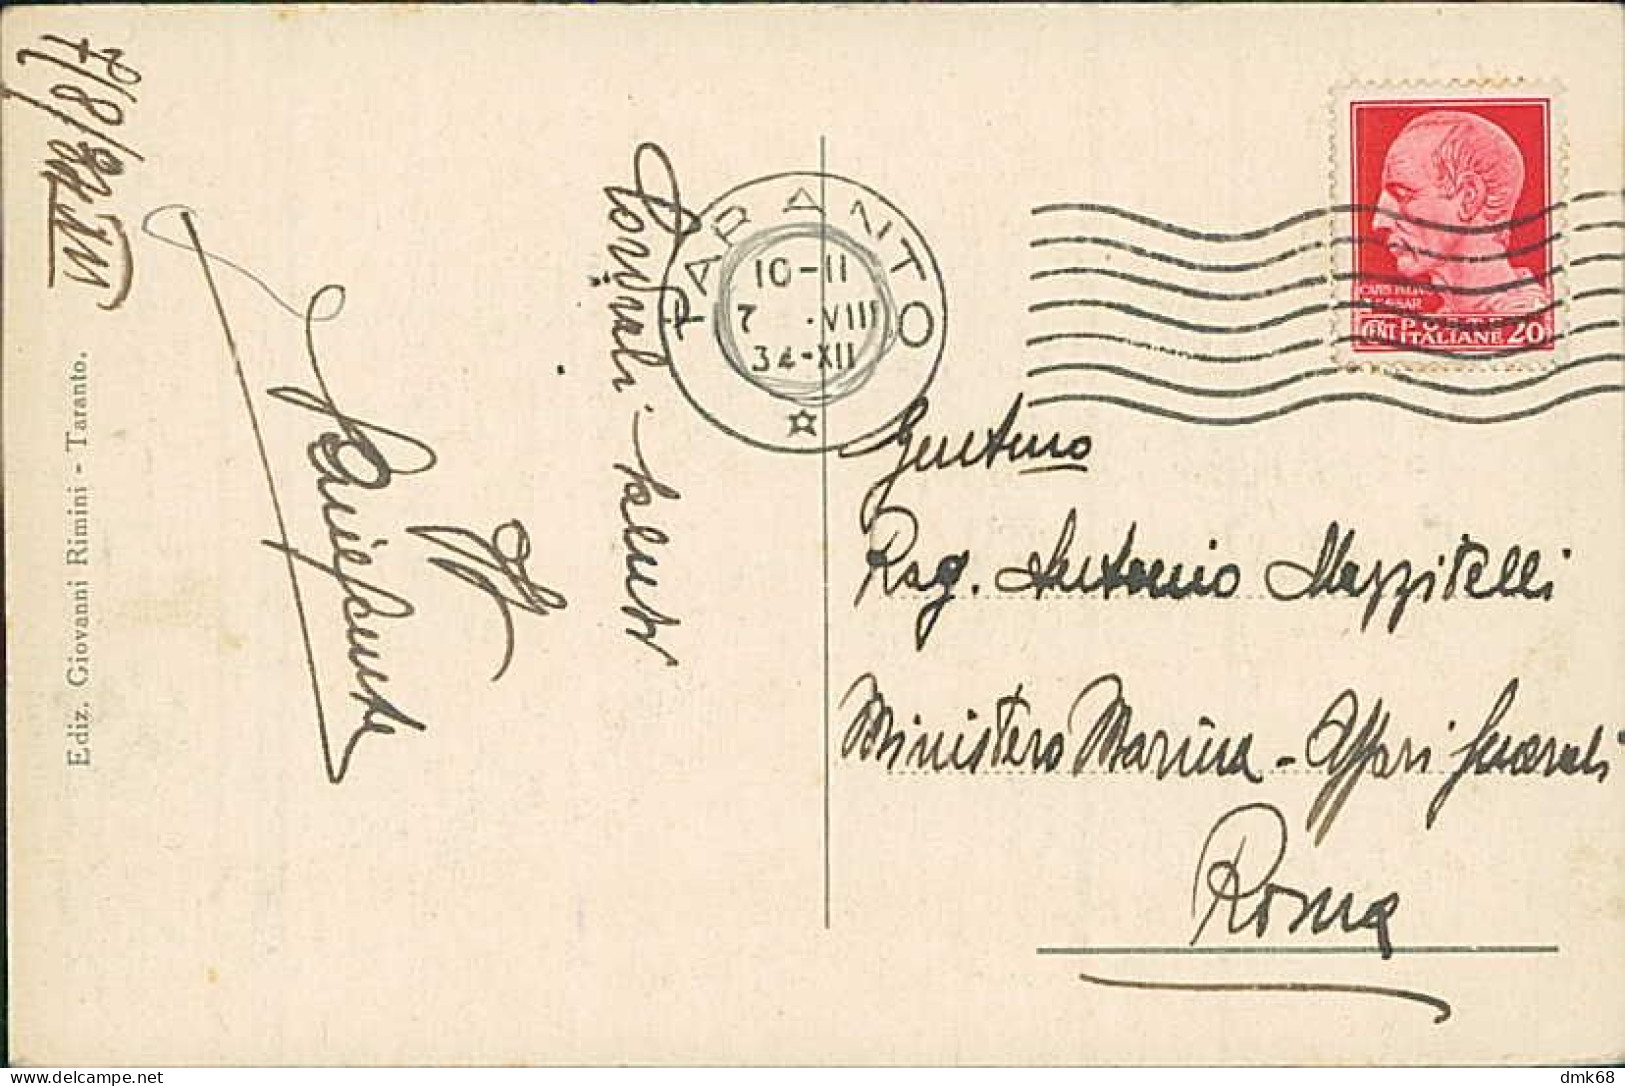 7/8/934 XII
Cordiali saluti
Ediz. Giovanni Rimini - Taranto.
TARANTO
10-11
7 .VIII
34-XII
POSTE
CENT ITALIANE 20
Rag. Antonio Mazzitelli
Ministero Marina - Affari Generali
Roma
delcampe.net
dmk68